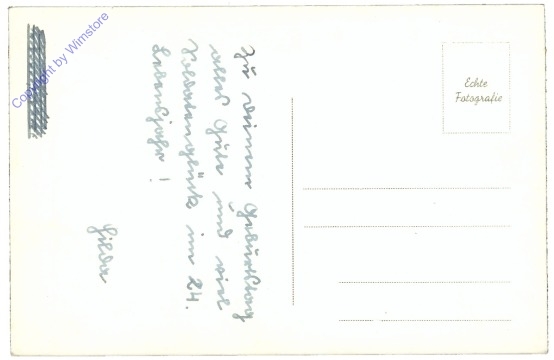 Zu Deinem Geburtstag
alles Gute und viel
Soldatenglück im 24.
Lebensjahr!
Hilda
Echte
Fotografie
Copyright by Wimstore